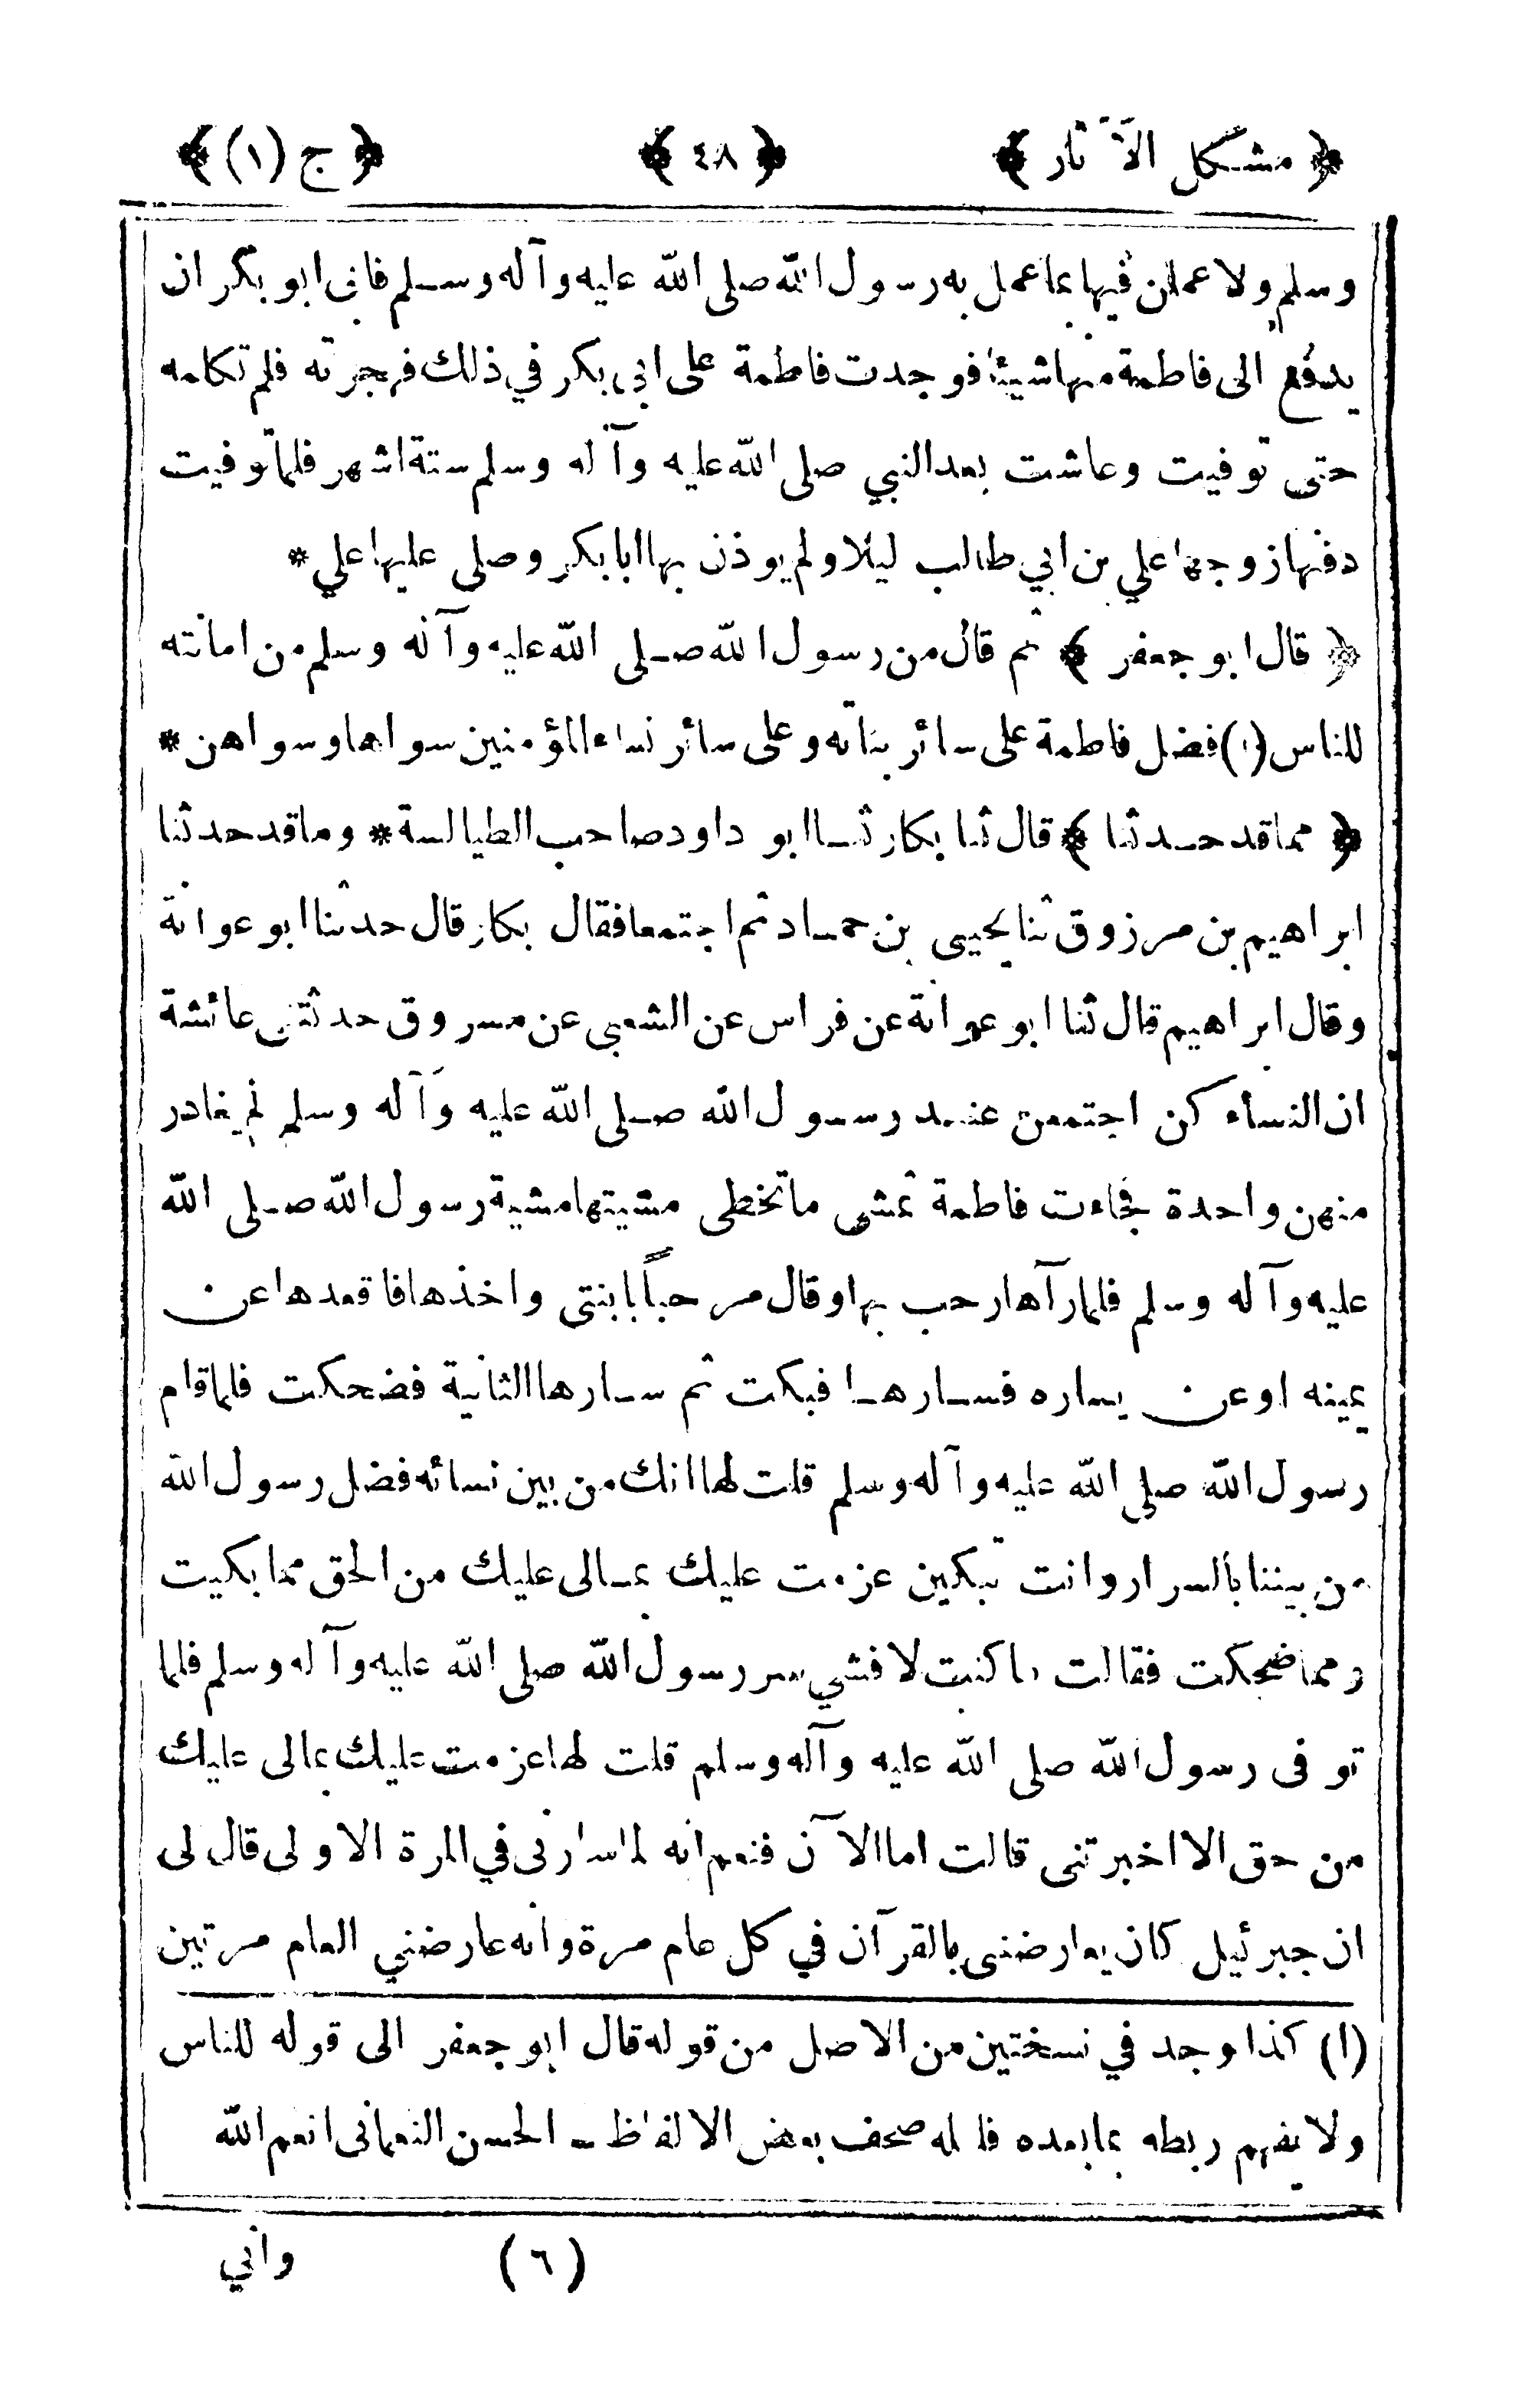 ﴿ مشكل الآثار ﴾ ﴿ ٤٨ ﴾ ﴿ ج (١) ﴾
وسلم ولا عملن فيها بما عمل به رسول الله صلى الله عليه وآله وسلم فابى ابو بكر ان
يدفع الى فاطمة منها شيئا فوجدت فاطمة على ابي بكر في ذلك فهجرته فلم تكلمه
حتى توفيت وعاشت بعد النبي صلى الله عليه وآله وسلم ستة اشهر فلما توفيت
دفنها زوجها علي بن ابي طالب ليلا ولم يوذن بها ابا بكر وصلى عليها علي *
﴿ قال ابو جعفر ﴾ ثم قال من رسول الله صلى الله عليه وآله وسلم من امانته
للناس (١) فضل فاطمة على سائر بناته وعلى سائر نساء المؤمنين سواها وسواهن *
﴿ مما قد حدثنا ﴾ قال ثنا بكار ثنا ابو داود صاحب الطيالسة * وما قد حدثنا
ابراهيم بن مرزوق ثنا يحيى بن حماد ثم اجتمعا فقال بكار قال حدثنا ابو عوانة
وقال ابراهيم قال ثنا ابو عوانة عن فراس عن الشعبى عن مسروق حدثتنى عائشة
ان النساء كن اجتمعن عند رسول الله صلى الله عليه وآله وسلم لم يغادر
منهن واحدة فجاءت فاطمة تمشى ما تخطى مشيتها مشية رسول الله صلى الله
عليه وآله وسلم فلما رآها رحب بها وقال مرحباً بابنتى واخذها فاقعدها عن
يمينه او عن يساره فسارها فبكت ثم سارها الثانية فضحكت فلما قام
رسول الله صلى الله عليه وآله وسلم قلت لها انك من بين نسائه فضل رسول الله
من بيننا بالسرار وانت تبكين عزمت عليك بمالى عليك من الحق مما بكيت
ومما ضحكت فقالت ما كنت لافشي سر رسول الله صلى الله عليه وآله وسلم فلما
توفى رسول الله صلى الله عليه وآله وسلم قلت لها عزمت عليك بمالى عليك
من حق الا اخبرتنى قالت اما الآن فنعم انه لما سارنى في المرة الاولى قال لى
ان جبرئيل كان يعارضنى بالقرآن في كل عام مرة وانه عارضني العام مرتين
(١) كذا وجد في نسختين من الاصل من قوله قال ابو جعفر الى قوله للناس
ولا يفهم ربطه بما بعده فلعله صحف بعض الالفاظ - الحسن النعمانى انعم الله
(٦) وانى